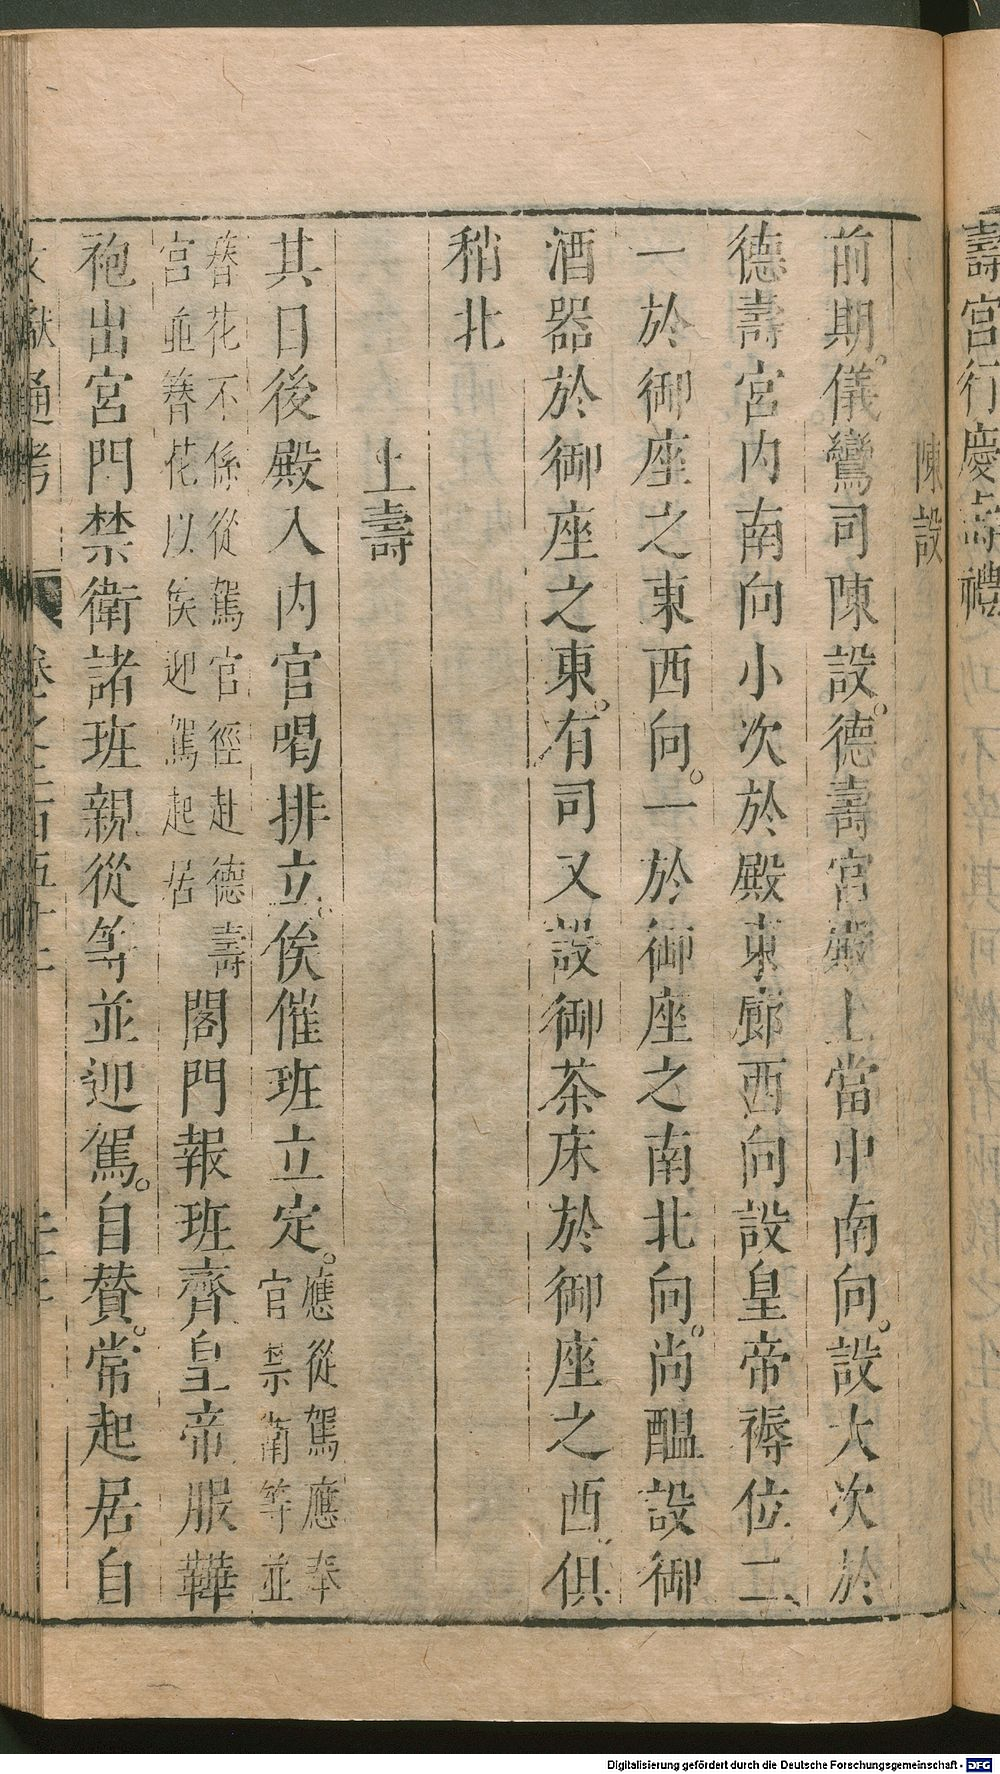 壽宮行慶壽禮
陳設
前期儀鸞司陳設德壽宮殿上當中南向設大次於
德壽宮内南向小次於殿東廊西向設皇帝褥位二
一於御座之東西向一於御座之南北向尚醞設御
酒器於御座之東有司又設御茶床於御座之西俱
稍北
上壽
其日後殿入内官喝排立俟催班立定應從駕應奉
官禁衛等並
簪花不係從駕官徑赴德壽
宮並簪花以俟迎駕起居
閤門報班齊皇帝服鞾
袍出宮門禁衛諸班親從等並迎駕自贊常起居自
文獻通考
Digitalisierung gefördert durch die Deutsche Forschungsgemeinschaft - DFG